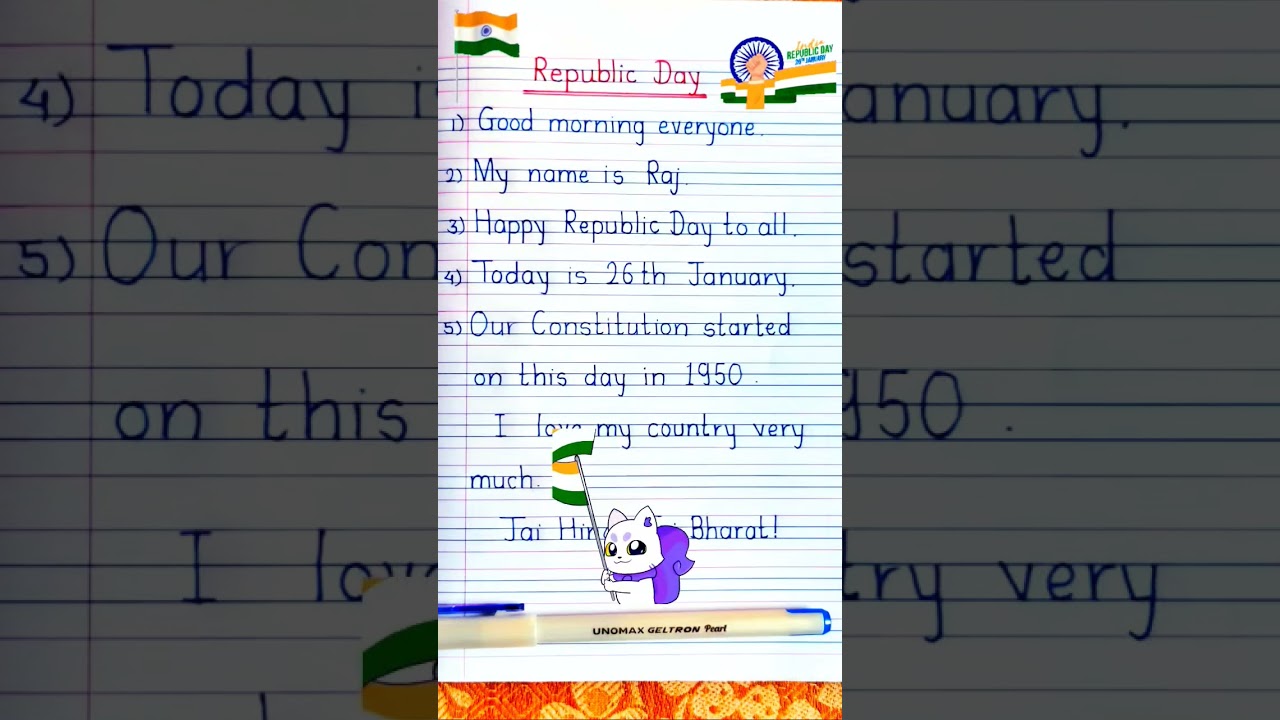 Republic Day
India
REPUBLIC DAY
26TH JANUARY
1) Good morning everyone.
2) My name is Raj.
3) Happy Republic Day to all.
4) Today is 26th January.
5) Our Constitution started
on this day in 1950.
I love my country very
much.
Jai Bharat!
UNOMAX GELTRON Pearl
4) Today
anuary.
5) Our Con
started
on this
950.
I
ry very